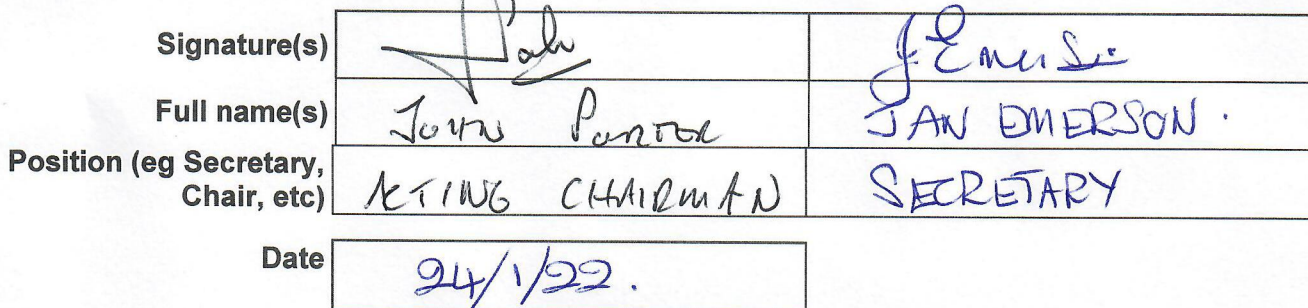 Signature(s) J. Emerson
Full name(s) JOHN PORTER JAN EMERSON.
Position (eg Secretary,
Chair, etc) ACTING CHAIRMAN SECRETARY
Date 24/1/22.